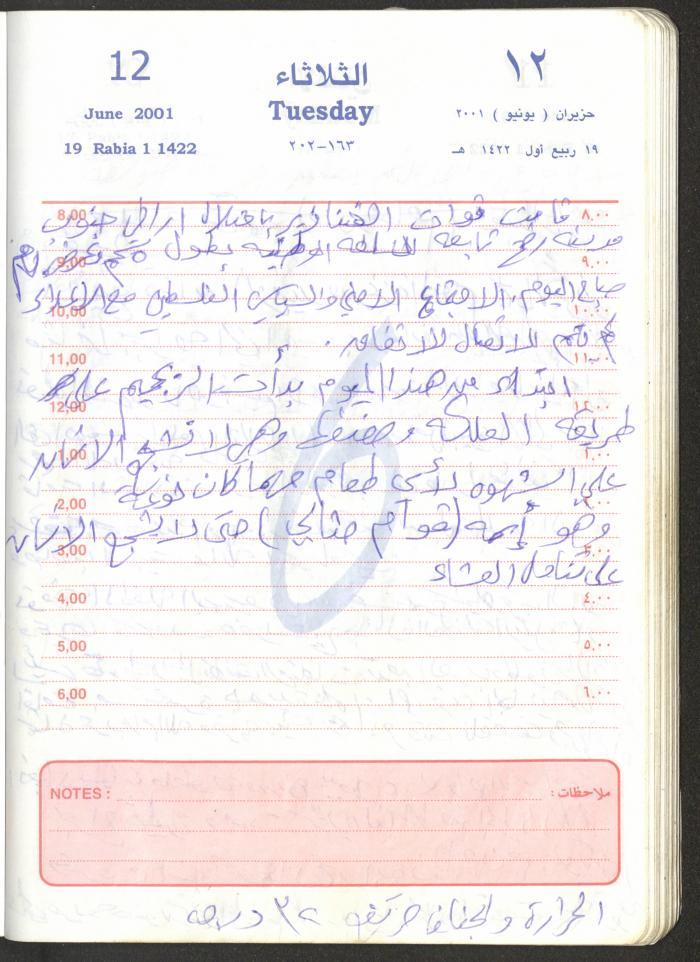 12 الثلاثاء ١٢
June 2001 Tuesday حزيران ( يونيو ) ٢٠٠١
19 Rabia 1 1422 ٢٠٢-١٦٣ ١٩ ربيع أول ١٤٢٢ هـ
8,00 قامت قوات باحتلال اراضي جنوب ٨,٠٠
مدينة رفح تابعة للسلطة الوطنية بطول
9,00 ٩,٠٠
صباح اليوم، الاجتماع الامني والسياسي الفلسطيني مع الاعداء
10,00 ١٠,٠٠
تم الاتصال للاتفاقه.
11,00 ١١,٠٠
ابتداء من هذا اليوم بدأت الريجيم على
12,00 ١٢,٠٠
طريقة العلكة وهي لا تشجع الانسان
1,00 ١,٠٠
على الشهوه لأي طعام مهما كان نوعية
2,00 ٢,٠٠
وهو إسمه (قوام مثالي) حتى لا يشجع الانسان
3,00 ٣,٠٠
على تناول العشاء
4,00 ٤,٠٠
5,00 ٥,٠٠
6,00 ٦,٠٠
NOTES : ملاحظات :
الحرارة والجفاف ٣٢ درجه